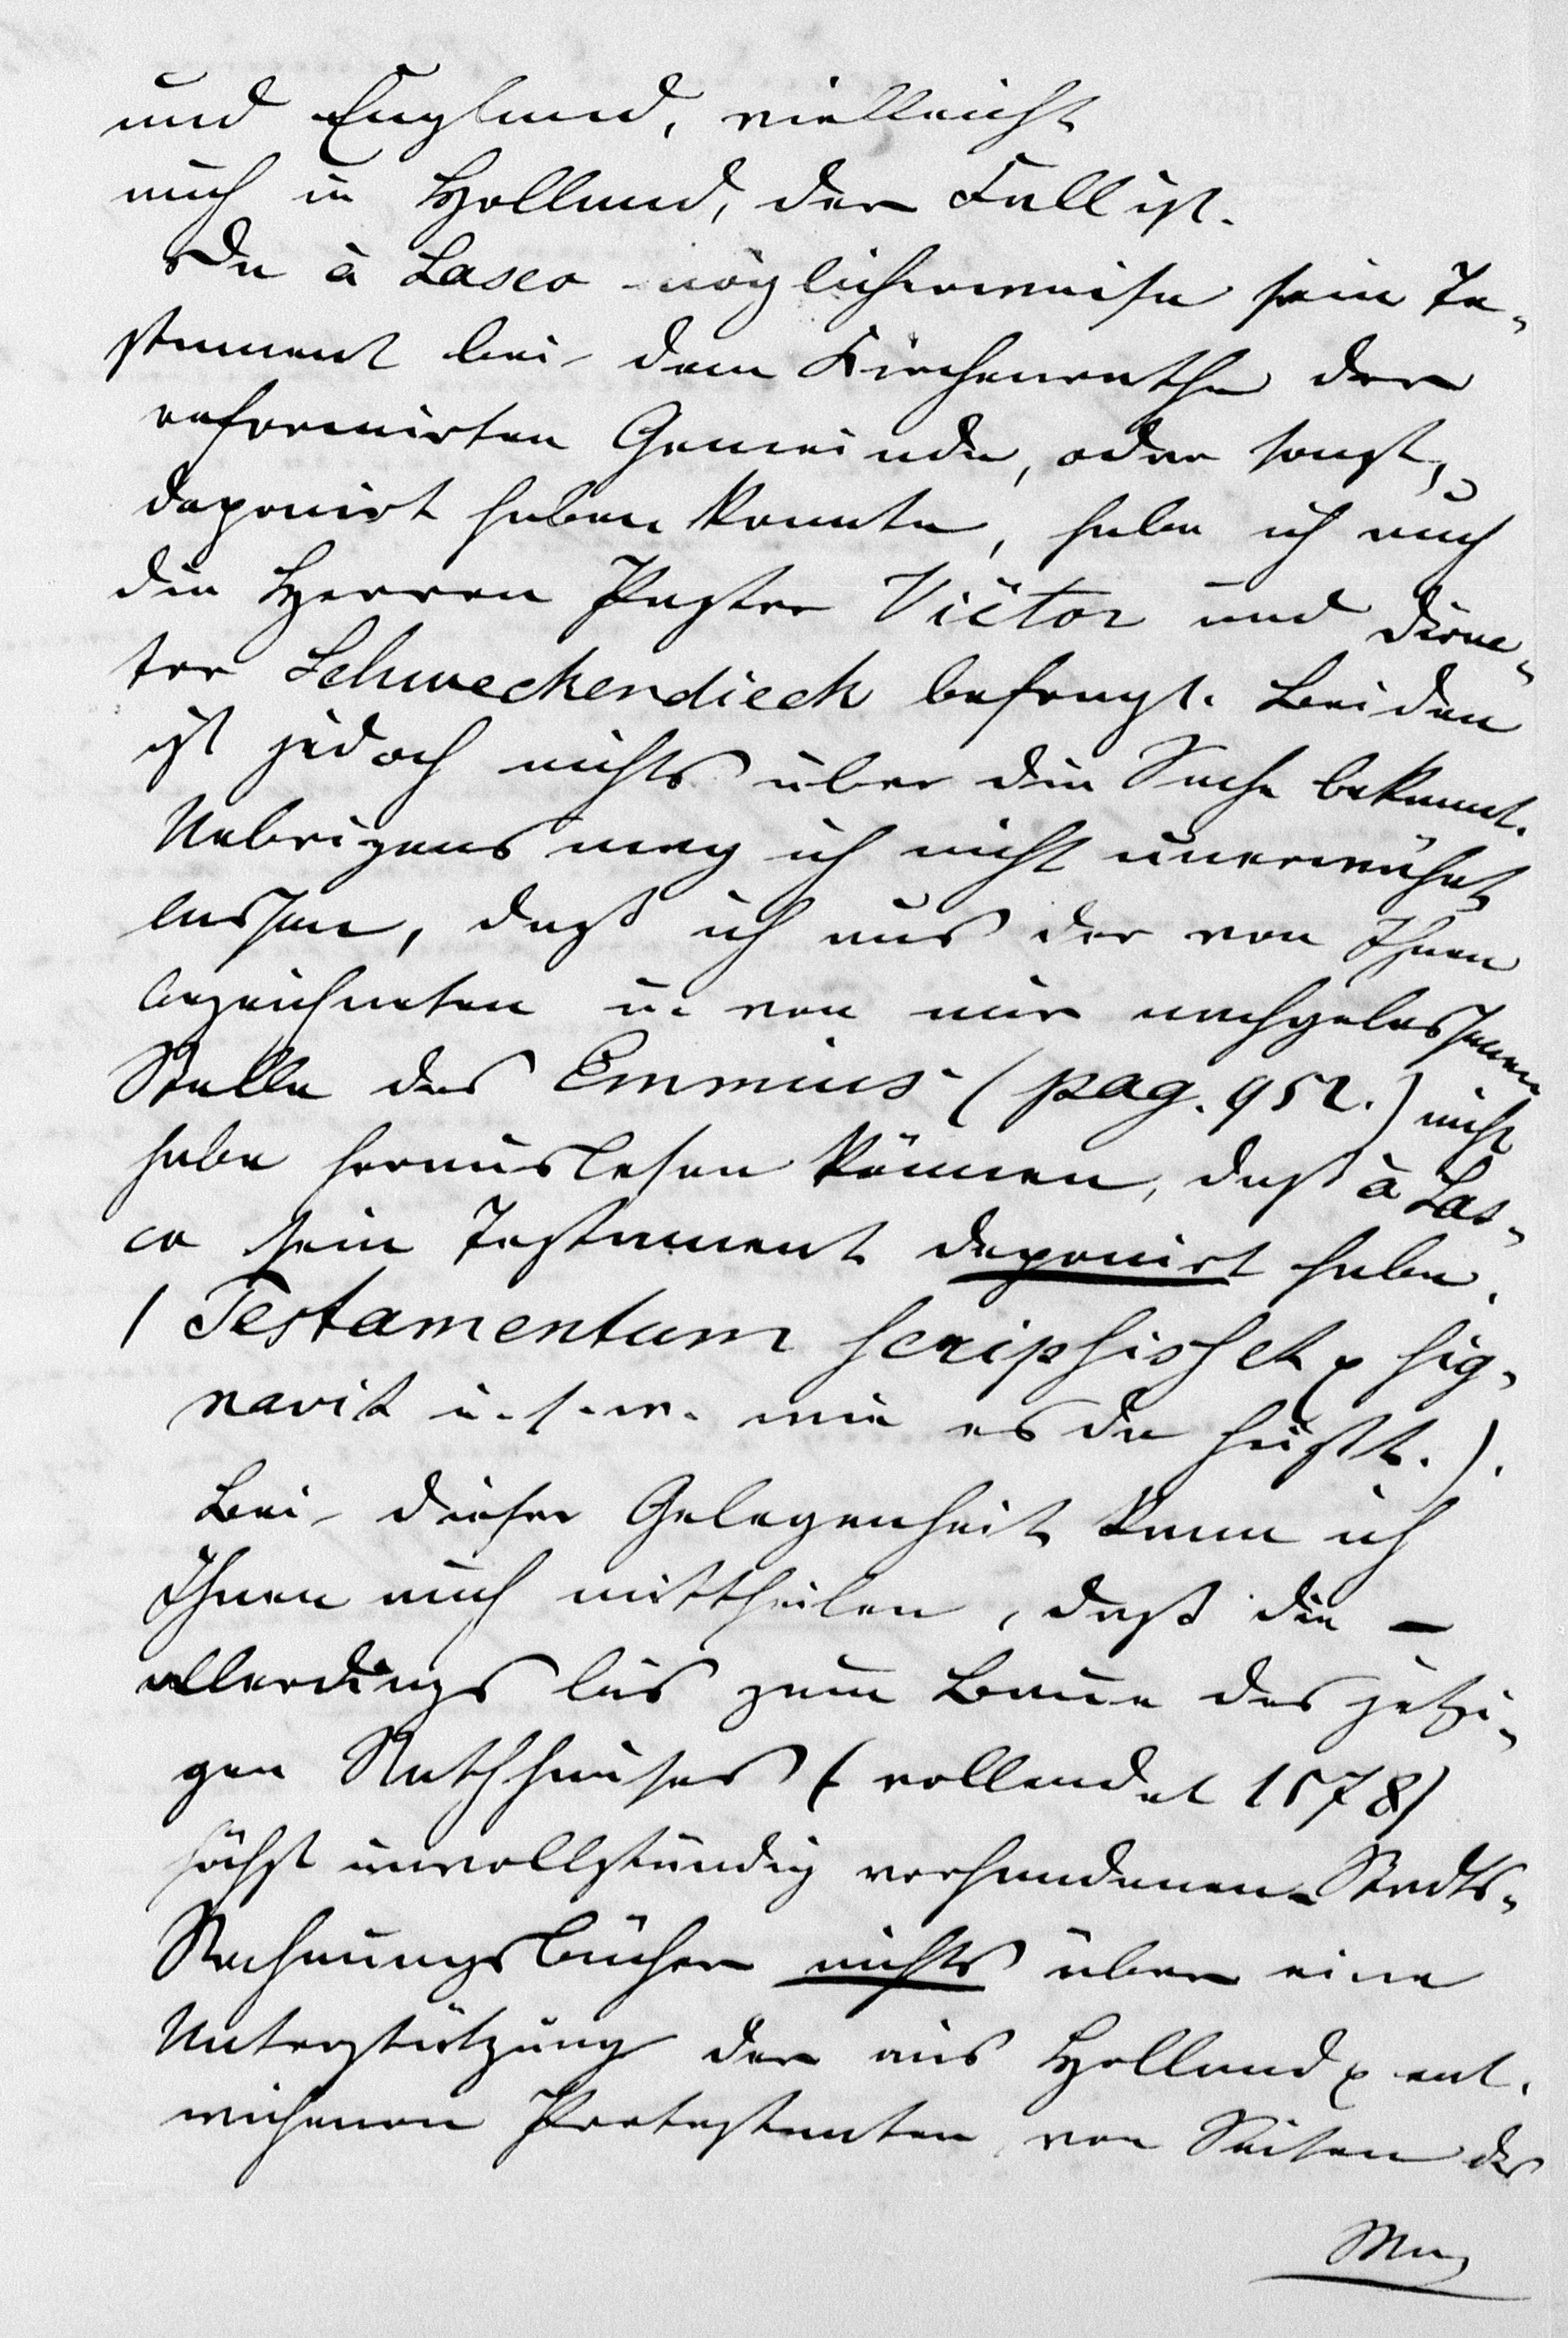 und England, vielleicht
auch in Holland, der Fall ist.
Da à Lasco möglicherweise sein Te-
stament bei dem Kirchenrathe der
reformirten Gemeinde, oder sonst,
deponirt haben konnte, habe ich auch
die Herren Pastor Viëtor und Direc-
tor Schweckendieck befragt. Beiden
ist jedoch nichts über die Sache bekannt.
Uebrigens mag ich nicht unerwähnt
lassen, daß ich aus der von Ihnen
bezeichneten u. von mir nachgelesenen
Stelle des Emmius (pag. 952.) nicht
habe herauslesen können, daß à Las-
co sein Testament deponirt habe.
(Testamentum scripsisset, sig-
navit u. s. w. wie es da heißt.).
Bei dieser Gelegenheit kann ich
Ihnen auch mittheilen, daß die –
allerdings bis zum Baue des jetzi-
gen Rathhauses (vollendet 1578)
höchst unvollständig vorhandenen – Stadts-
Rechnungsbücher nichts über eine
Unterstützung der aus Holland ent-
wichenen Protestanten von Seiten des
Mag